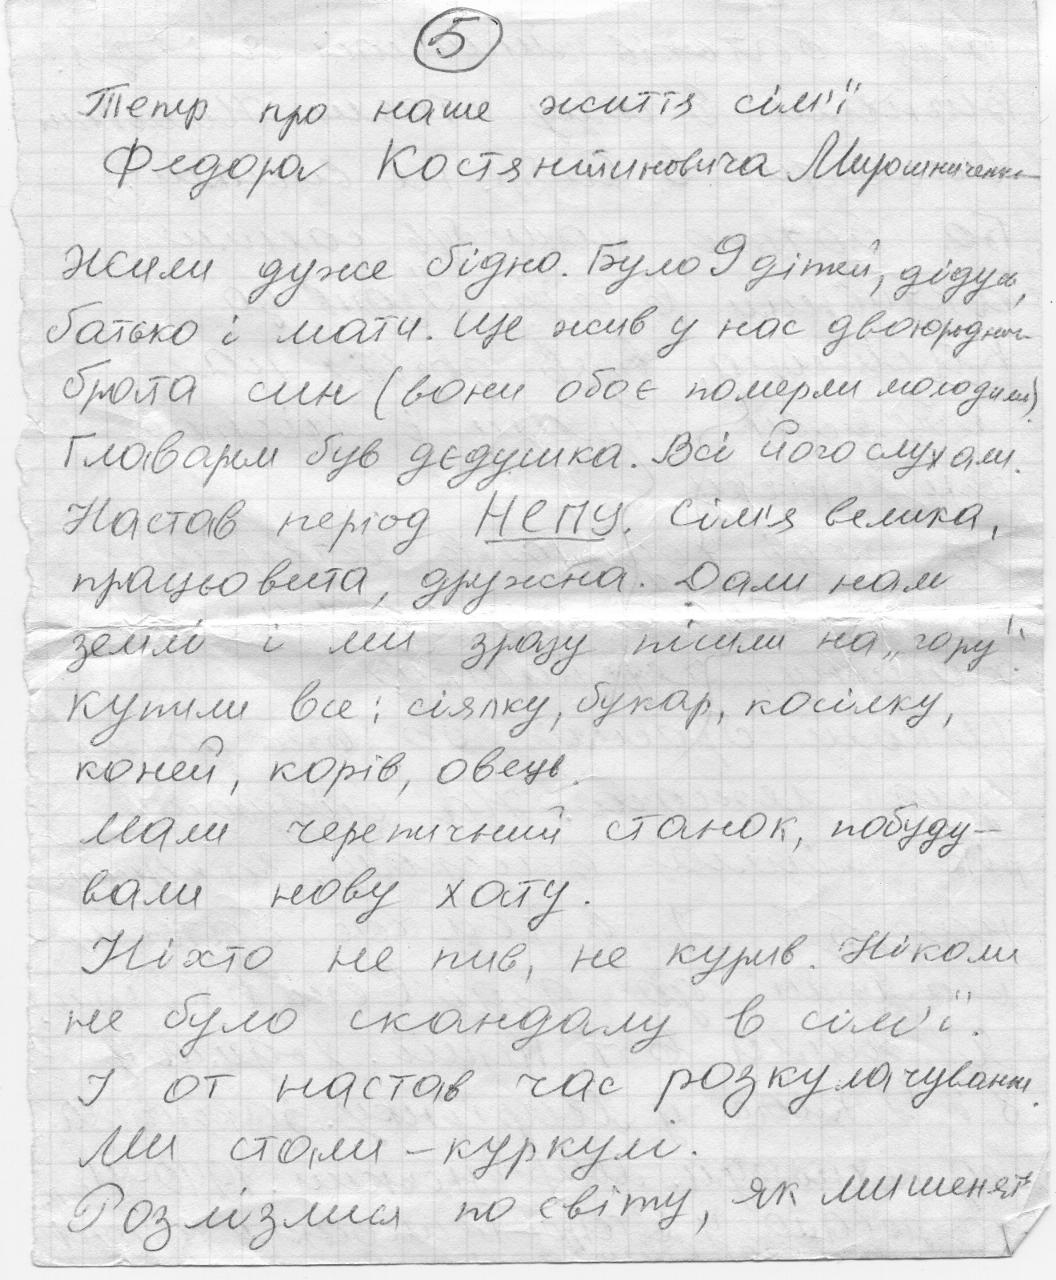 5
Тепер про наше життя сім'ї
Федора Костянтиновича Мирошниченка
Жили дуже бідно. Було 9 дітей, дідусь,
батько і мати. Ще жив у нас двоюрідного
брата син (вони обоє померли молодими)
Главарем був дєдушка. Всі його слухали.
Настав період НЕПУ. Сім'я велика,
працьовита, дружна. Дали нам
землі і ми зразу пішли на „гору".
Купили все: сіялку, букар, косілку,
коней, корів, овець.
Мали черепичний станок, побуду-
вали нову хату.
Ніхто не пив, не курив. Ніколи
не було скандалу в сім'ї.
І от настав час розкулачування.
Ми стали – куркулі.
Розлізлися по світу, як мишенята